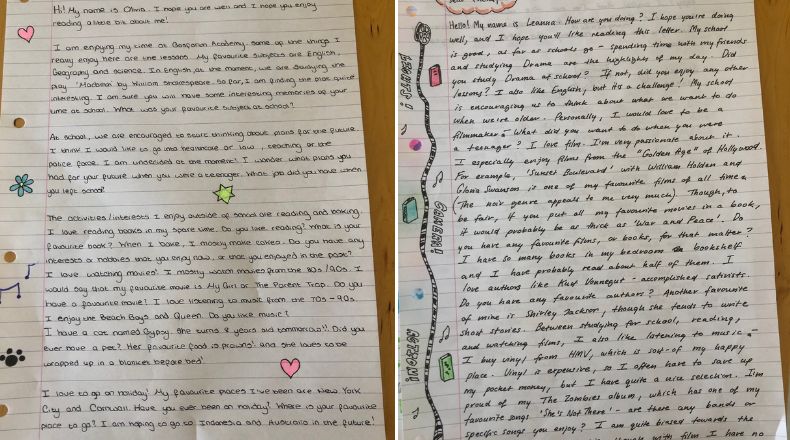 Hi! My name is Olivia. I hope you are well and I hope you enjoy
reading a little bit about me!
I am enjoying my time at Academy. Some of the things I
really enjoy here are the lessons. My favourite subjects are English,
Geography and science. In English at the moment, we are studying the
play 'Macbeth' by William Shakespeare. So far, I am finding the plot quite
interesting. I am sure you will have some interesting memories of your
time at school. What was your favourite subject at school?
At school, we are encouraged to start thinking about plans for the future.
I think I would like to go into healthcare or law, teaching or the
police force. I am undecided at the moment! I wonder what plans you
had for your future when you were a teenager. What job did you have when
you left school?
The activities/interests I enjoy outside of school are reading and baking.
I love reading books in my spare time. Do you like reading? What is your
favourite book? When I bake, I mostly make cakes. Do you have any
interests or hobbies that you enjoy now, or that you enjoyed in the past?
I love watching movies! I mostly watch movies from the 80s/90s. I
would say that my favourite movie is My Girl or The Parent Trap. Do you
have a favourite movie? I love listening to music from the 70s - 90s.
I enjoy the Beach Boys and Queen. Do you like music?
I have a cat named Gypsy. She turns 2 years old tomorrow!! Did you
ever have a pet? Her favourite food is prawns! and she loves to be
wrapped up in a blanket before bed!
I love to go on holiday! My favourite places I've been are New York
City and Cornwall. Have you ever been on holiday? Where is your favourite
place to go? I am hoping to go to Indonesia and Australia in the future!
Hello! My name is Leanna. How are you doing? I hope you're doing
well, and I hope you'll like reading this letter. My school
is good, as far as schools go - spending time with my friends
and studying Drama are the highlights of my day. Did
you study Drama at school? If not, did you enjoy any other
lessons? I also like English, but it's a challenge! My school
is encouraging us to think about what we want to do
when we're older. Personally, I would love to be a
filmmaker. What did you want to do when you were
a teenager? I love film. I'm very passionate about it.
I especially enjoy films from the "Golden Age" of Hollywood.
For example, 'Sunset Boulevard' with William Holden and
Gloria Swanson is one of my favourite films of all time
(The noir genre appeals to me very much). Though, to
be fair, if you put all my favourite movies in a book,
it would probably be as thick as 'War and Peace'. Do
you have any favourite films, or books, for that matter?
I have so many books in my bedroom bookshelf
and I have probably read about half of them. I
love authors like Kurt Vonnegut - accomplished satirists.
Do you have any favourite authors? Another favourite
of mine is Shirley Jackson, though she tends to write
short stories. Between studying for school, reading,
and watching films, I also like listening to music -
I buy vinyl from HMV, which is sort-of my happy
place. Vinyl is expensive, so I often have to save up
my pocket money, but I have quite a nice selection. I'm
proud of my The Zombies album, which has one of my
favourite songs 'She's Not There' - are there any bands or
specific songs you enjoy? I am quite biased towards the
though with film I have no
CAMERA!